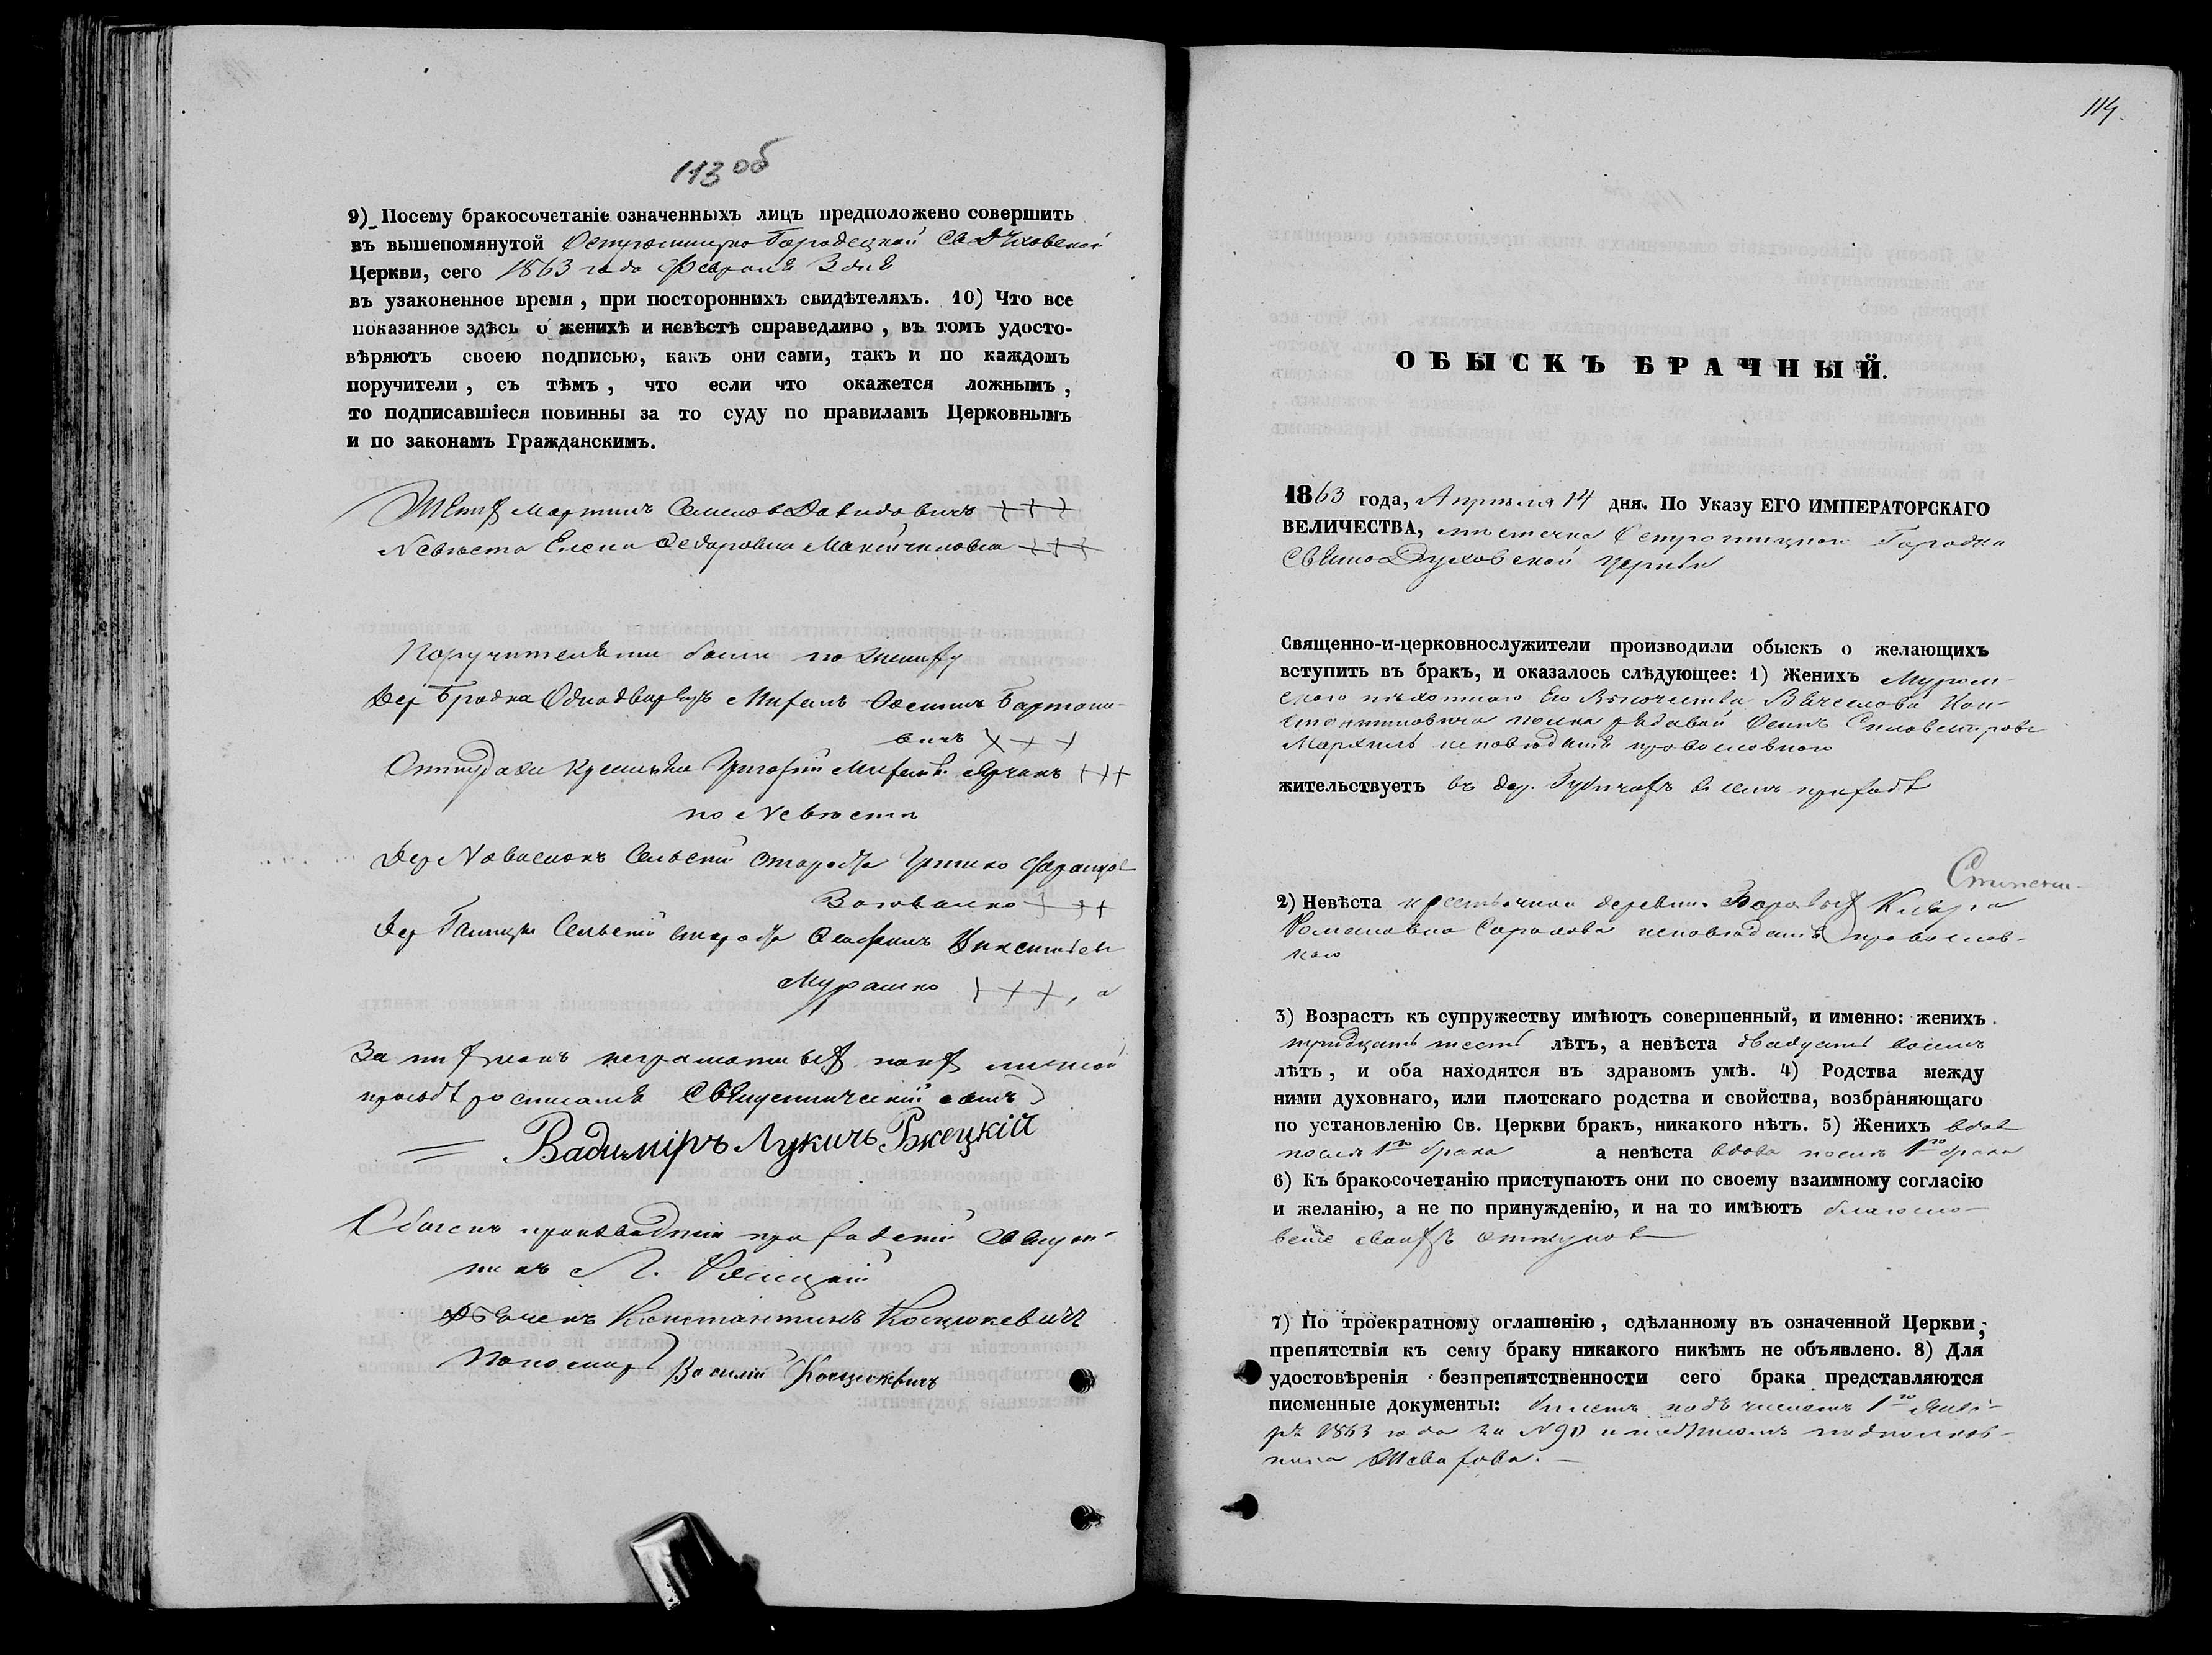 113 об
9) Посему бракосочетаніе означенныхъ лицъ предположено совершить
въ вышепомянутой Острошицко Городецкой Св Духовской
Церкви, сего 1863 года Февраля 3 дня
въ узаконенное время, при постороннихъ свидѣтеляхъ. 10) Что все
показанное здѣсь о женихѣ и невѣстѣ справедливо, въ томъ удосто-
вѣряютъ своею подписью, какъ они сами, такъ и по каждомъ
поручители, съ тѣмъ, что если что окажется ложнымъ,
то подписавшіеся повинны за то суду по правиламъ Церковнымъ
и по законамъ Гражданскимъ.
Мартинъ Семеновъ Давидовичъ +++
Невѣста Елена Федоровна +++
Поручителями были по жениху
Дер Бродка Однодворецъ Михаилъ Осиповъ Бартоше-
вичъ +++
Оттуда же Григорій +++
по Невѣсте
Дер Сельскій староста Гришко
+++
Дер Сельскій староста
Мурашко +++, а
За ни неграмотныхъ по ихъ личной
прозьбѣ росписался Священническій сынъ
Вадимiръ Лукичъ Ржецкій
Обыскъ производили приходскій Священ-
никъ Л. Ржецкій
Дьячекъ Константинъ Косцюкевичъ
Пономарь Василій Косцюкевичъ
114.
ОБЫСКЪ БРАЧНЫЙ.
1863 года, Апрѣля 14 дня. По Указу ЕГО ИМПЕРАТОРСКАГО
ВЕЛИЧЕСТВА, мѣстечка Острошицкого Городка
Свято Духовской церкви
Священно-и-церковнослужители производили обыскъ о желающихъ
вступить въ бракъ, и оказалось слѣдующее: 1) Женихъ Муром-
скаго пѣхотнаго Его Высочества Вячеслава Кон-
стантиновича полка рядовой Осипъ Сильвестровъ
исповѣданія православнаго
жительствуетъ въ дер. въ семъ приходѣ
2) Невѣста крестьянка деревни Боровыхъ
Романовна исповѣданія православ-
наго
3) Возрастъ къ супружеству имѣютъ совершенный, и именно: женихъ
тридцать шесть лѣтъ, а невѣста двадцать восемь
лѣтъ, и оба находятся въ здравомъ умѣ. 4) Родства между
ними духовнаго, или плотскаго родства и свойства, возбраняющаго
по установленію Св. Церкви бракъ, никакого нѣтъ. 5) Женихъ вдов
послѣ 1го брака а невѣста вдова послѣ 1го брака
6) Къ бракосочетанію приступаютъ они по своему взаимному согласію
и желанію, а не по принужденію, и на то имѣютъ благосло-
веніе своихъ
7) По троекратному оглашенію, сдѣланному въ означенной Церкви,
препятствія къ сему браку никакого никѣмъ не объявлено. 8) Для
удостовѣренія безпрепятственности сего брака представляются
писменные документы: билетъ подъ числомъ 1го Янва-
ря 1863 года за N 90 подполков-
ника